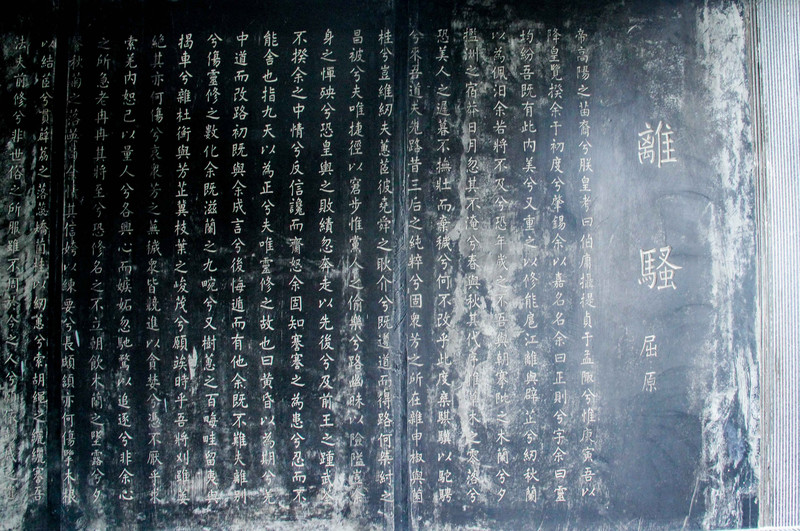 離騷
屈原
帝高陽之苗裔兮朕皇考曰伯庸攝提貞于孟陬兮惟庚寅吾以
降皇覽揆余于初度兮肇錫余以嘉名名余曰正則兮字余曰靈
均紛吾既有此內美兮又重之以修能扈江離與辟芷兮紉秋蘭
以為佩汨余若將不及兮恐年歲之不吾與朝搴阰之木蘭兮夕
攬洲之宿莽日月忽其不淹兮春與秋其代序惟草木之零落兮
恐美人之遲暮不撫壯而棄穢兮何不改乎此度乘騏驥以馳騁
兮來吾道夫先路昔三后之純粹兮固衆芳之所在雜申椒與菌
桂兮豈維紉夫蕙茝彼堯舜之耿介兮既遵道而得路何桀紂之
昌被兮夫唯捷徑以窘步惟黨人之偷樂兮路幽昧以險隘豈余
身之憚殃兮恐皇輿之敗績忽奔走以先後兮及前王之踵武荃
不揆余之中情兮反信讒而齌怒余固知謇謇之為患兮忍而不
能舍也指九天以為正兮夫唯靈修之故也曰黃昏以為期兮羌
中道而改路初既與余成言兮後悔遁而有他余既不難夫離別
兮傷靈修之數化余既滋蘭之九畹兮又樹蕙之百畮畦留夷與
揭車兮雜杜衡與芳芷冀枝葉之峻茂兮願竢時乎吾將刈雖萎
絕其亦何傷兮哀衆芳之蕪穢衆皆競進以貪婪兮憑不厭乎求
索羌內恕己以量人兮各興心而嫉妬忽馳騖以追逐兮非余心
之所急老冉冉其將至兮恐修名之不立朝飲木蘭之墜露兮夕
秋菊之落英苟余情其信姱以練要兮長顑頷亦何傷擥木根
以結茝兮貫薜荔之落蕊矯菌桂以紉蕙兮索胡繩之纚纚謇吾
法夫前修兮非世俗之所服雖不周於今之人兮